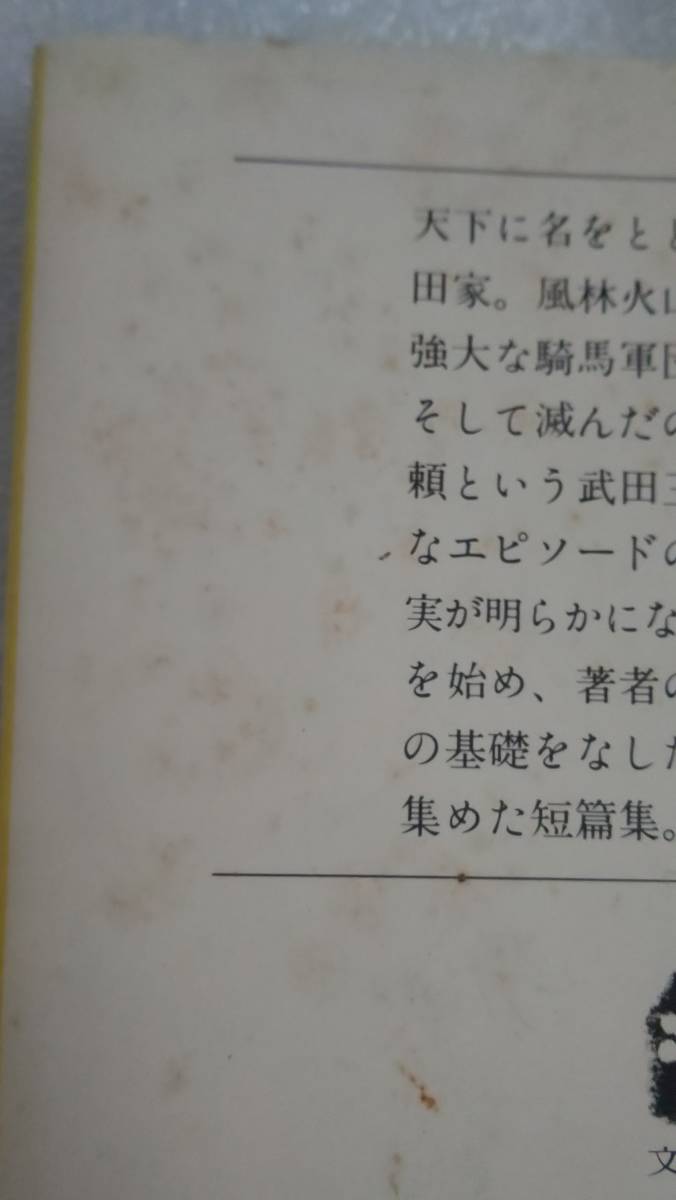 天下に名をとど
田家。風林火山
強大な騎馬軍団
そして滅んだの
頼という武田三
なエピソードの
実が明らかにな
を始め、著者の
の基礎をなした
集めた短篇集。
文